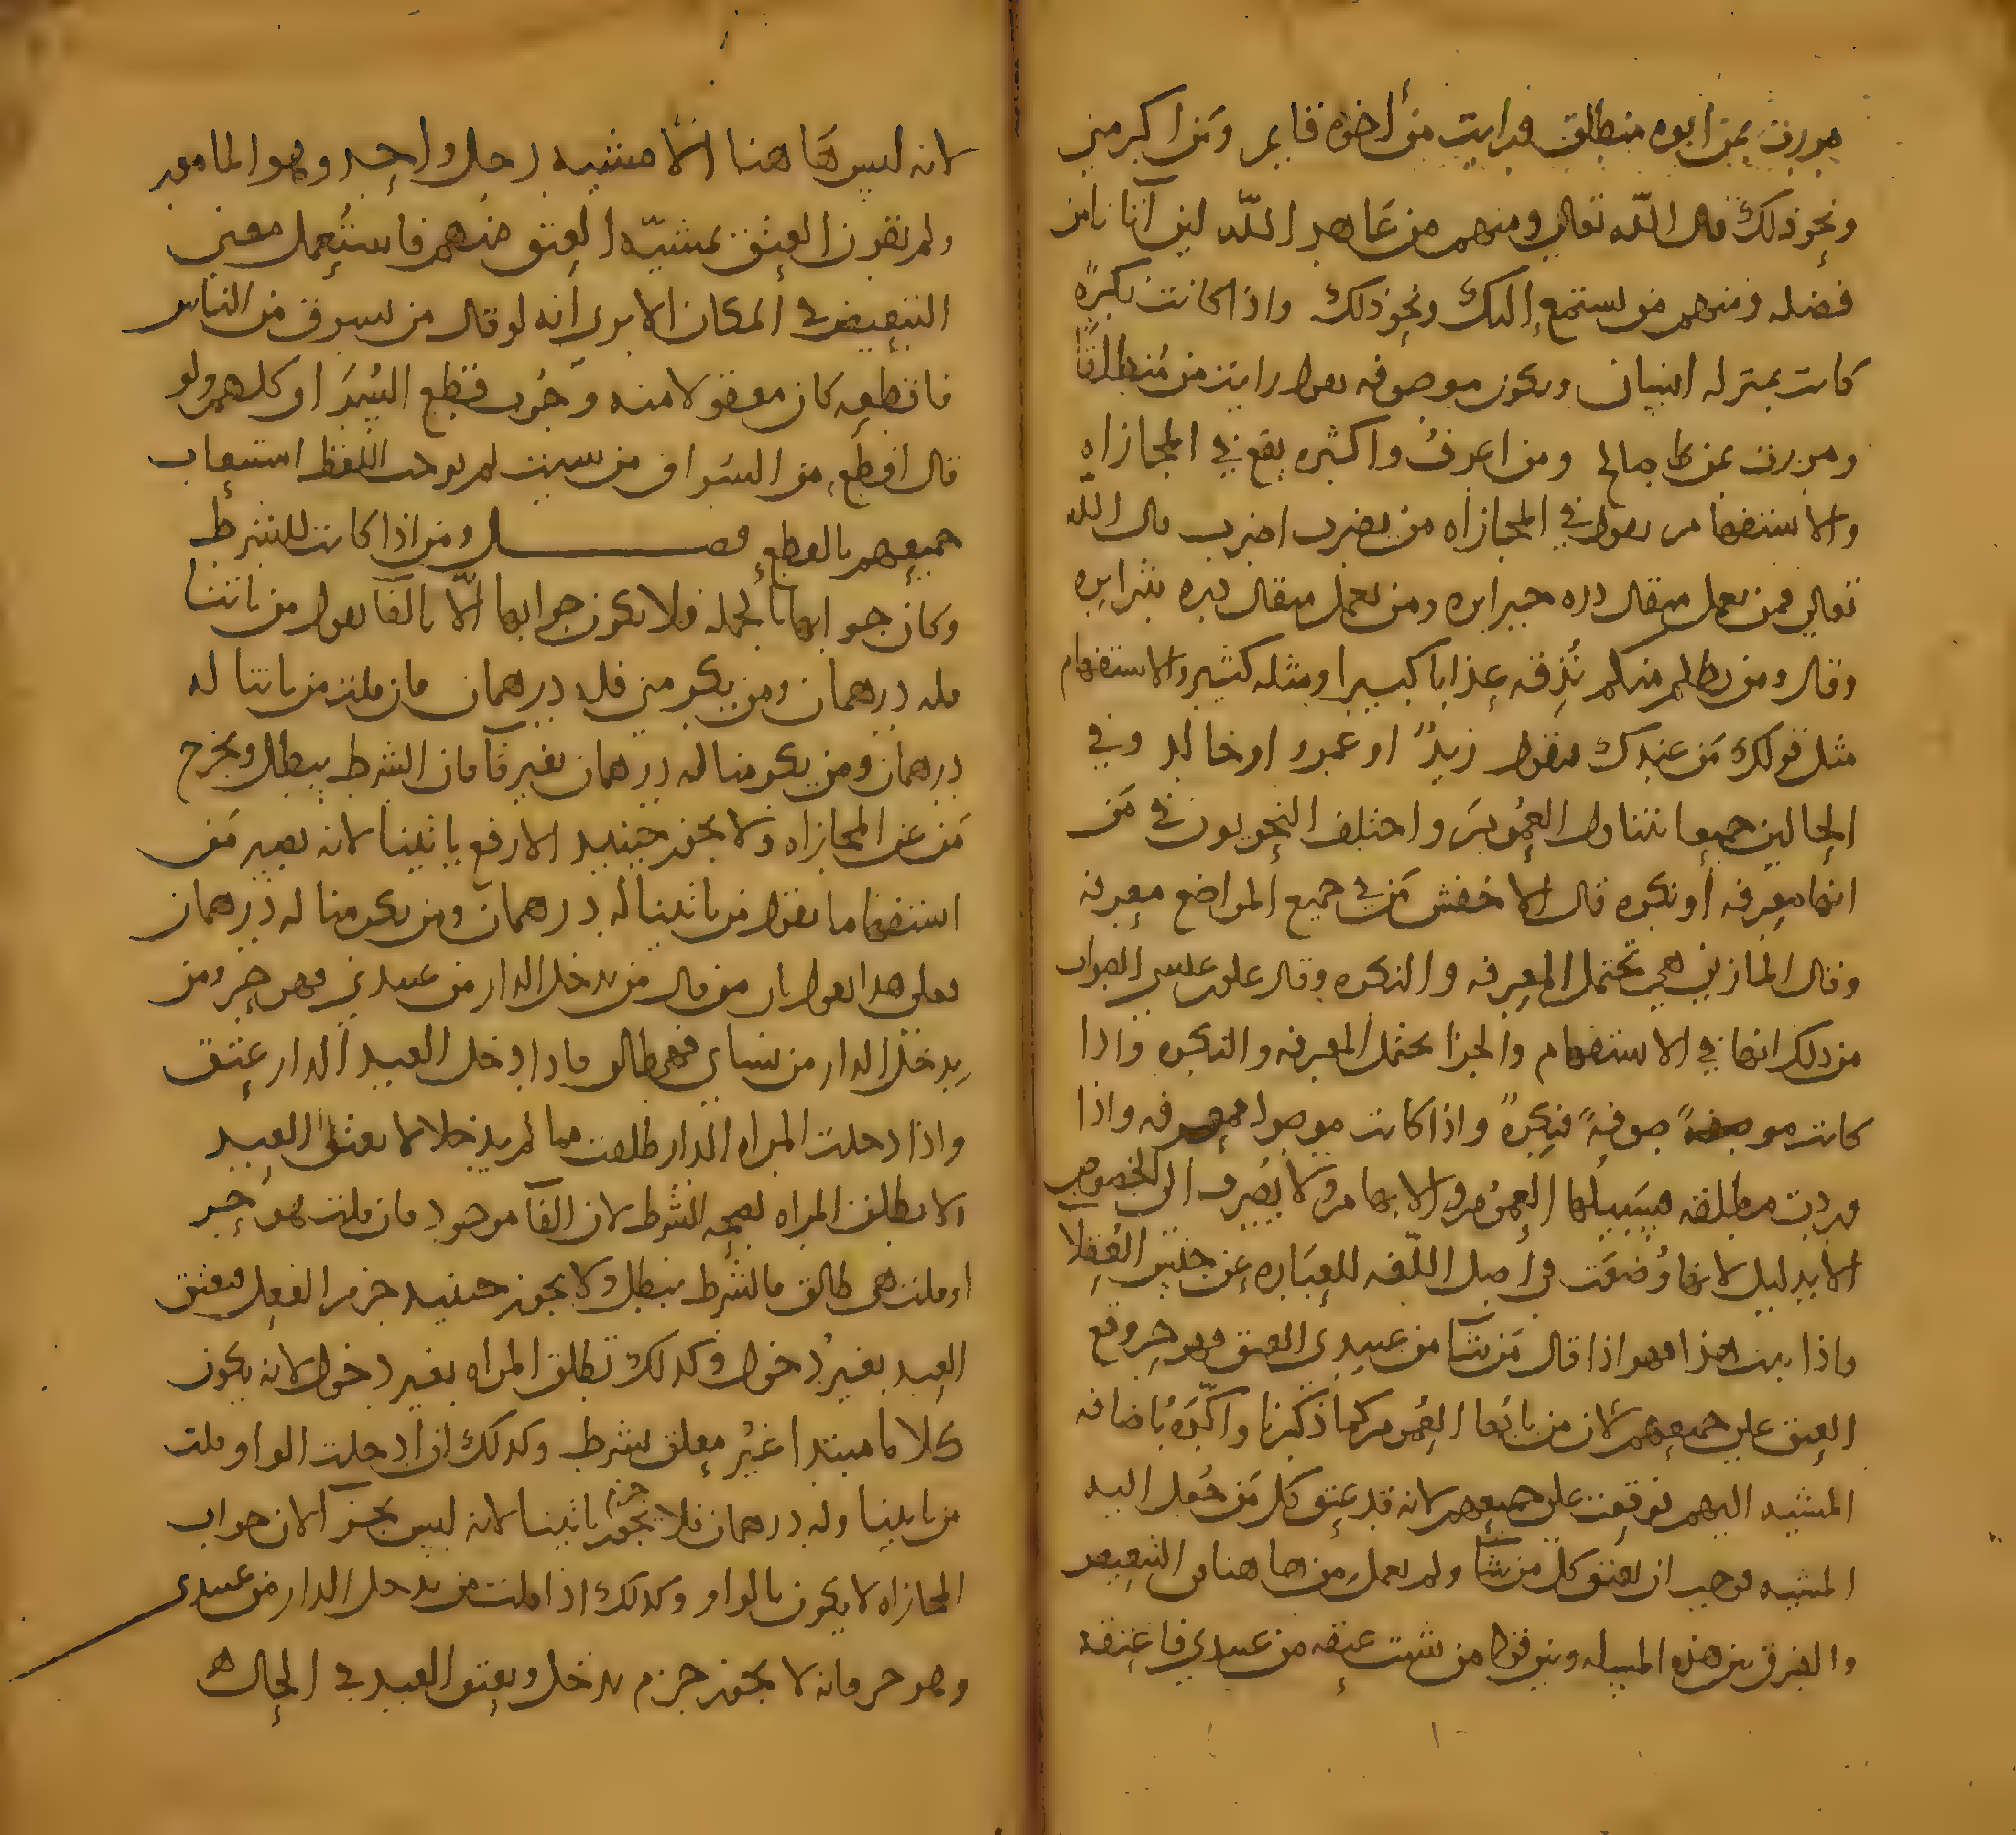 مررت بمن ابوه منطلق ورايت من أخوه قايم ومن اكرمني
ونحو ذلك قال اللّه تعالى ومنهم من عَاهد اللّه لين آتانا من
فضله ومنهم من يستمع إليك ونحو ذلك واذا كانت نكرةً
كانت بمنزله انسان ويكون موصوفه يقول رايت من مُنطلقًا
ومررت بمن صالح ومن اعرفُ واكثره يقع في المجازاه
والاستفهام يقول في المجازاه من يضرب اضرب قال اللّه
تعالى فمن يعمل مثقال ذره خيرا يره ومن يعمل مثقال ذره شرا يره
وقال ومن يظلم منكم نُذِقه عذابا كبيرا ومثله كثير والاستفهام
مثل قولك مَن عندك فيقول زيدٌ او عمرو او خالد وفي
الحالين جميعا يتناول العُمُومَ واختلف النحويون في مَن
انها معرفه أو نكره قال الاخفش مَن في جميع المواضع معرفه
وقال المازني هي تحتمل المعرفه والنكره وقال علي بن عيسى الصواب
من ذلك انها في الاستفهام والجزا يحتمل المعرفه والنكره واذا
كانت موصوفةً فنكرةٌ واذا كانت موصولا فمعرفه واذا
وردت مطلقه فسَبيلُها العمُوم والابهام ولا يُصَرف الى الخصوص
الا بدليل لانها وُضعَت في أصل اللّغه للعبَاره عن جنس العُقلا
واذا ثبت هذا فهو اذا قال مَن شآ من عبيدى العتق فهو حر وقع
العتق على جميعهم لان من بابُها العُموم كما ذكرنا واكّدَهُ باضافه
المشيه اليهم فوقعت على جميعهم لانه قد عتق كل مَن جُعل اليه
المشيه فوجب ان يعتق كل من شآ ولم يعمل مِن ها هنا في التبعيض
والفرق بين هذه المسيله وبين قوله من شيت عتقه من عبيدي فاعتقه
لانه ليس هَا هنا الا مشيه رجل واحِد وهو المامور
ولم يقرن العتق بمشيّه العتق منهم فاستُعمل معنى
التبعيض في المكان الا يرى أنه لو قال من يسرق من الناس
فاقطعه كان معقولا منه وجُوب قطع السُرَّاق كلهم ولو
قال اقطع من السراق من سيت لم يوجب اللفظ استيعاب
جميعهم بالقطع فصل ومن اذا كانت للشرط
وكان جوابها بالجمله فلا يكون جوابها الّا بالفآ يقول من ياتنا
فله درهمان ومن يكرمني فله درهمان فان قلت من ياتنا له
درهمان ومن يكرمنا له درهمان بغير فآ فان الشرط يبطل ويخرج
مَن عن المجازاه ولا يجوز حينيد الا رفع ياتينا لانه يصير مَن
استفهاما يقول من ياتينا له درهمان ومن يكرمنا له درهمان
فعلى هدا القول بان من قال من يدخل الدار من عبيدي فهو حر ومن
يدخل الدار من نساي فهي طالق فاذا دخل العبد الدار عتق
واذا دخلت المراه الدار طلقت فما لم يدخلا لا يعتق العبد
ولا يطلق المراه لصحه الشرط لان الفآ موجود فان قلت هو حر
او قلت هى طالق فالشرط يبطل ولا يجوز حينيد جزم الفعل فيعتق
العبد بغير دخول وكدلك تطلق المراه بغير دخول لانه يكون
كلاما مبتدا غيرُ معلق بشرط وكدلك ان ادخلت الواو قلت
من ياتينا وله درهمان فلا يجوز جزم ياتينا لانه ليس بجزآ لان جواب
المجازاه لا يكون بالواو وكدلك اذا قلت من يدخل الدار من عبيدى
وهو حر فانه لا يجوز جزم يدخل ويعتق العبد في الحال ه